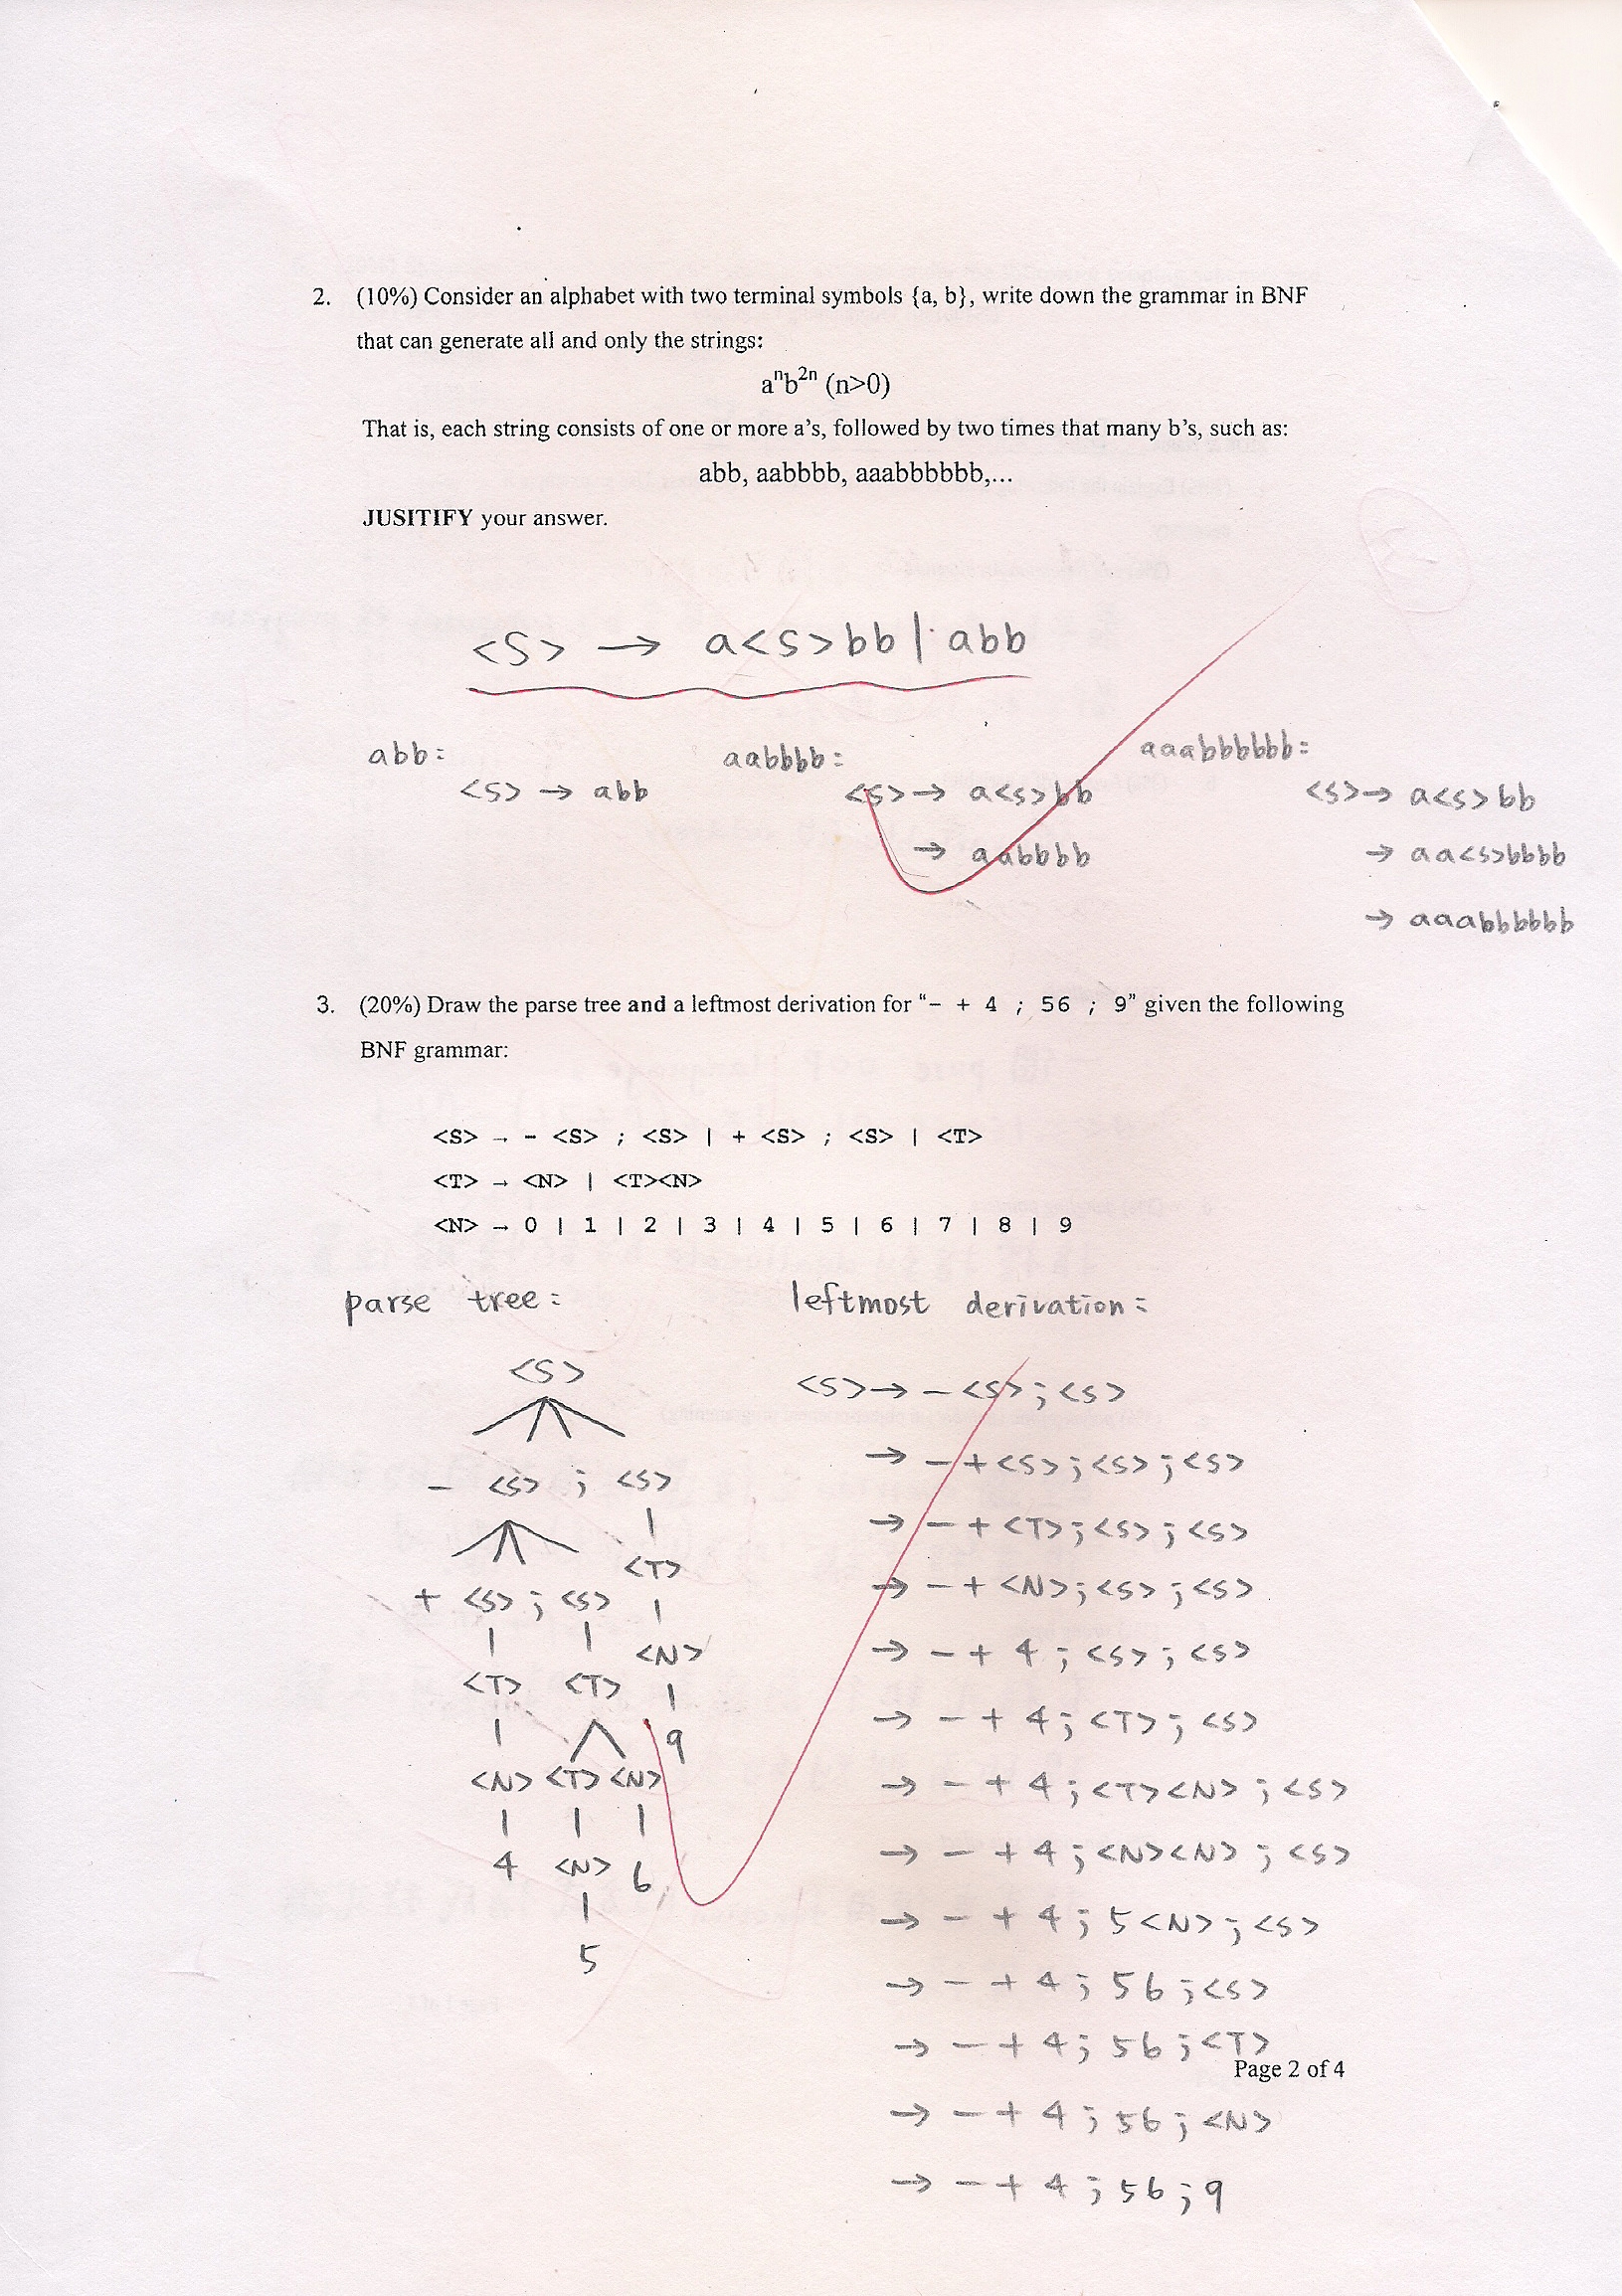 2. (10%) Consider an alphabet with two terminal symbols {a, b}, write down the grammar in BNF
that can generate all and only the strings:
aⁿb²ⁿ (n>0)
That is, each string consists of one or more a's, followed by two times that many b's, such as:
abb, aabbbb, aaabbbbbb,...
JUSITIFY your answer.
<S> → a<S>bb | abb
abb:
<S> → abb
aabbbb:
<S> → a<S>bb
→ aabbbb
aaabbbbbb:
<S> → a<S>bb
→ aa<S>bbbb
→ aaabbbbbb
3. (20%) Draw the parse tree and a leftmost derivation for "- + 4 ; 56 ; 9" given the following
BNF grammar:
<S> → - <S> ; <S> | + <S> ; <S> | <T>
<T> → <N> | <T><N>
<N> → 0 | 1 | 2 | 3 | 4 | 5 | 6 | 7 | 8 | 9
parse tree:
<S>
- <S> ; <S>
<T>
+ <S> ; <S>
<N>
<T> <T>
9
<N> <T> <N>
4 <N> 6
5
leftmost derivation:
<S> → - <S> ; <S>
→ - + <S> ; <S> ; <S>
→ - + <T> ; <S> ; <S>
→ - + <N> ; <S> ; <S>
→ - + 4 ; <S> ; <S>
→ - + 4 ; <T> ; <S>
→ - + 4 ; <T><N> ; <S>
→ - + 4 ; <N><N> ; <S>
→ - + 4 ; 5<N> ; <S>
→ - + 4 ; 56 ; <S>
→ - + 4 ; 56 ; <T>
Page 2 of 4
→ - + 4 ; 56 ; <N>
→ - + 4 ; 56 ; 9